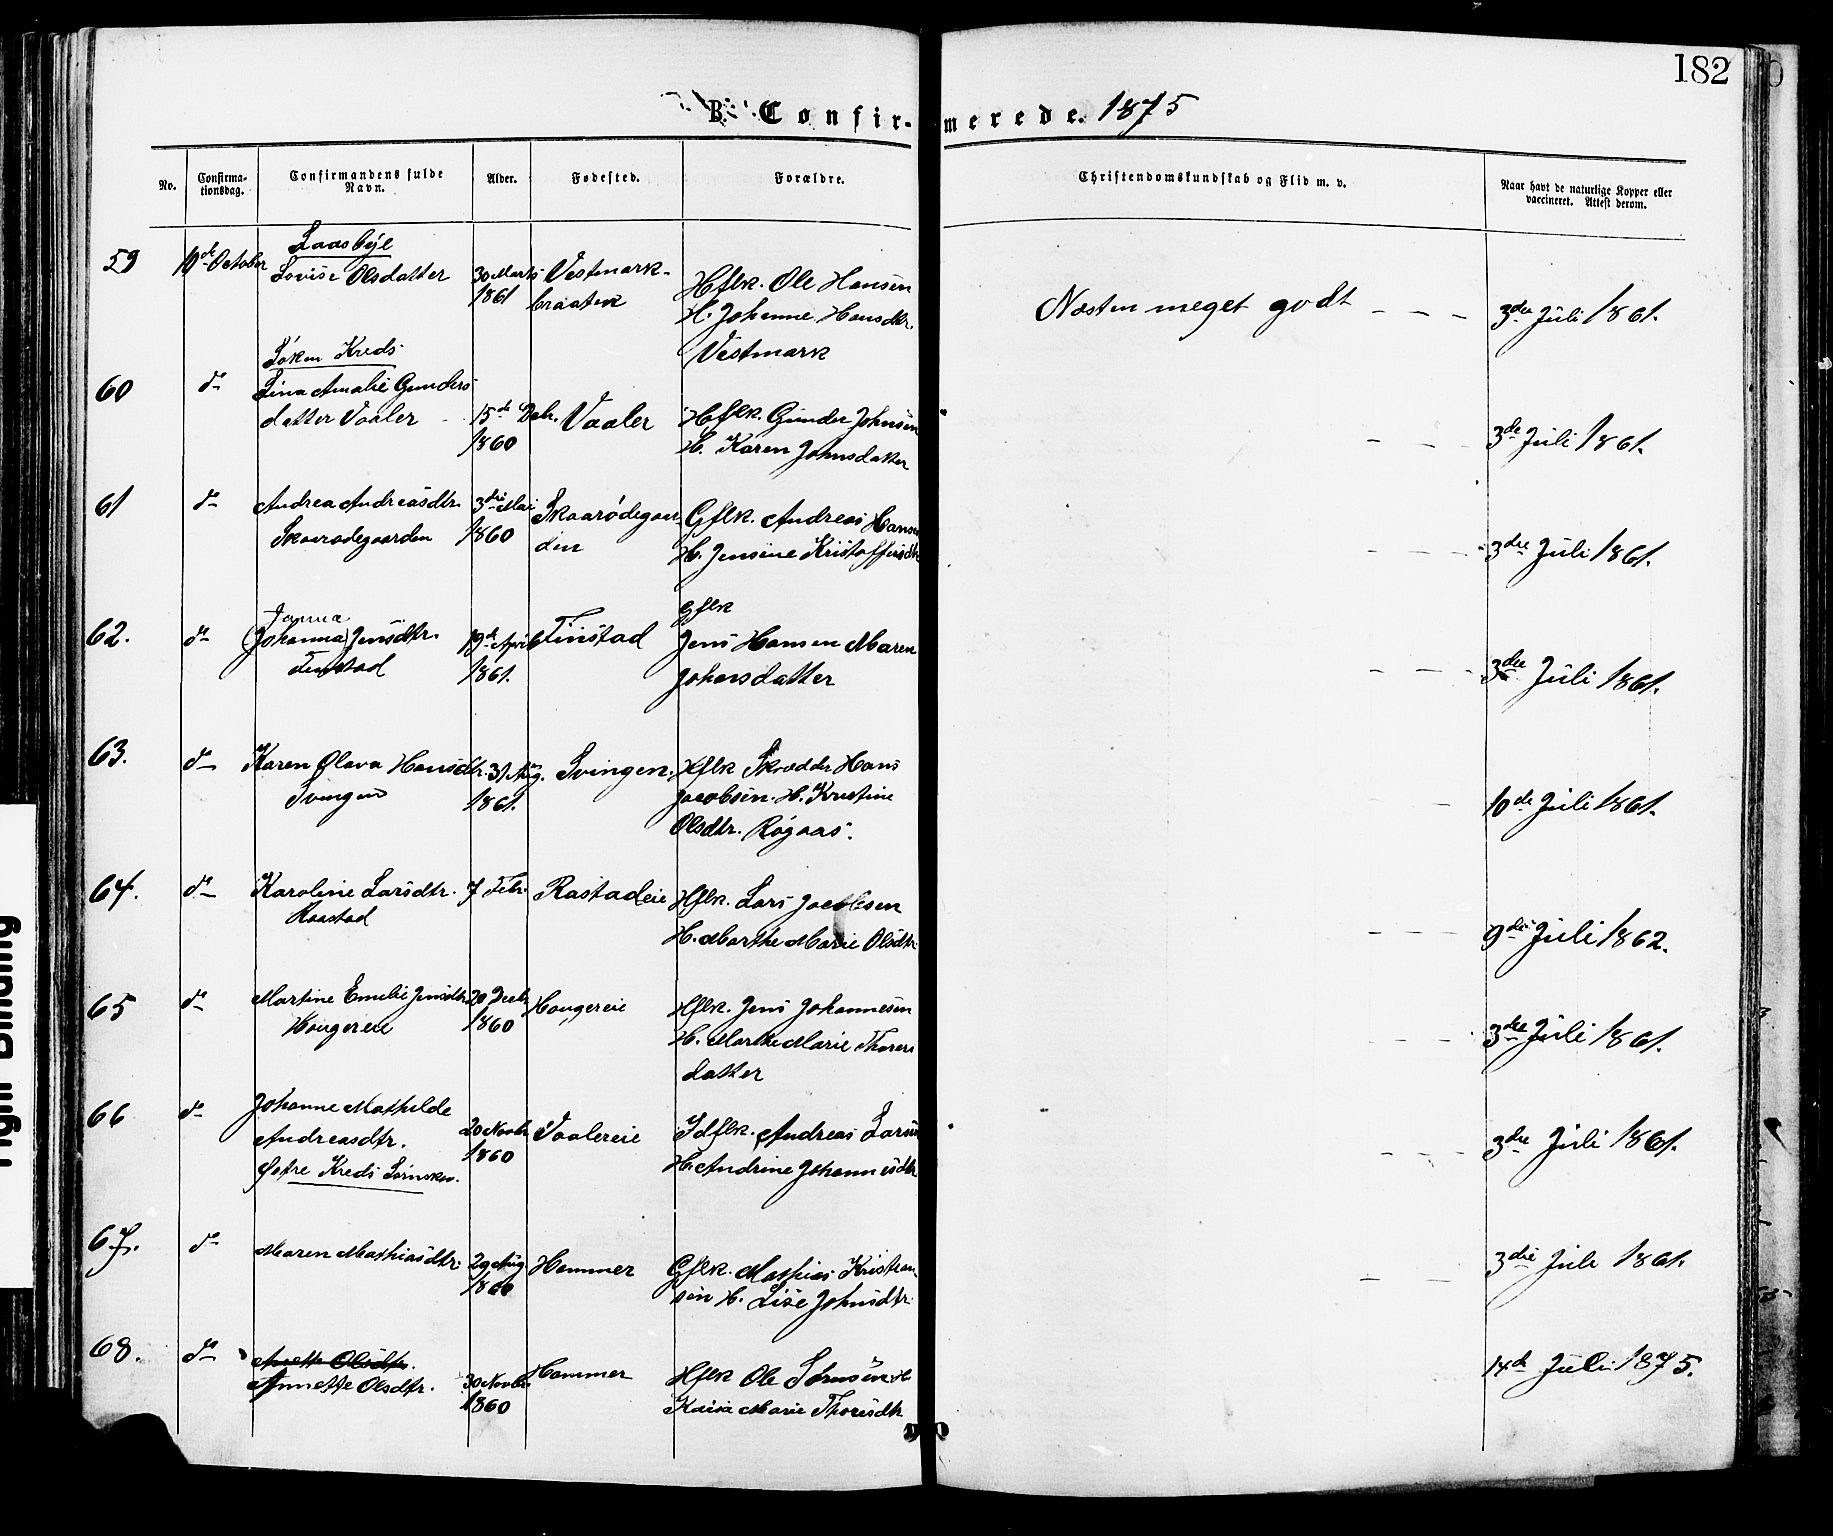 182
B. Confirmerede. 1875
No.
Confirma-
tionsdag.
Confirmandens fulde
Navn.
Alder.
Fødested.
Forældre.
Christendomskundskab og Flid m. v.
Naar havt de naturlige Kopper eller
vaccineret. Attest derom.
59
10de October
Laasbye
Lovise Olsdatter
30 Marts
1861
Vestmark-
braaten
Hflk. Ole Hansen
H. Johanne Hansdtr.
Vestmark
Næsten meget godt - - -
3die Juli 1861.
60
do
Løken Kreds
Lina Amalie Gunders
datter Vaaler
15de Debr.
1860
Vaaler
Hflk. Gunder Johnsen
H. Karen Johnsdatter
- - -
3die Juli 1861.
61
do
Andrea Andreasdtr.
Skaarødegaarden
3die Mai
1860
Skaarødegaar
den
Gflk. Andreas Hansen
H. Jensine Kristoffersdtr
- - -
3die Juli 1861.
62.
do
Janna
(Johanna) Jensdtr.
Finstad
19de April
1861.
Finstad
Gflk
Jens Hansen Maren
Johansdatter
- - -
3die Juli 1861.
63.
do
Karen Olava Hansdtr.
Svingen
31 Aug.
1861.
Svingen.
Hflk Skrædder Hans
Jacobsen. H. Kristine
Olsdtr. Røgaas.
-
10de Juli 1861.
64.
do
Karoline Larsdtr.
Raastad
7 Febr.
Rastadeie
Hflk. Lars Jacobsen
H. Marthe Marie Olsdtr
- - -
9de Juli 1862.
65
do
Martine Emelie Jensdtr
Haugereie
20 Decbr
1860
Haugereie
Hflk. Jens Johannesen
H. Marthe Marie Thores
datter
- - -
3die Juli 1861.
66
do
Johanne Mathilde
Andreasdtr.
Østre Kreds
20 Novbr
1860
Vaalereie
Idflk. Andreas Larsen
H. Andrine Johannesdtr
- - -
3die Juli 1861.
67.
do
Maren Mathiasdtr.
29 Aug.
1860
Hammer
Gflk. Mathias Kristian
sen H. Lise Johnsdtr.
- -
3die Juli 1861.
68.
do
Anette Olsdtr.
Annette Olsdtr.
30 Novbr
1860
Hammer
Hflk Ole Sørensen H
Kaisa Marie Thoresdtr
14de Juli 1875.